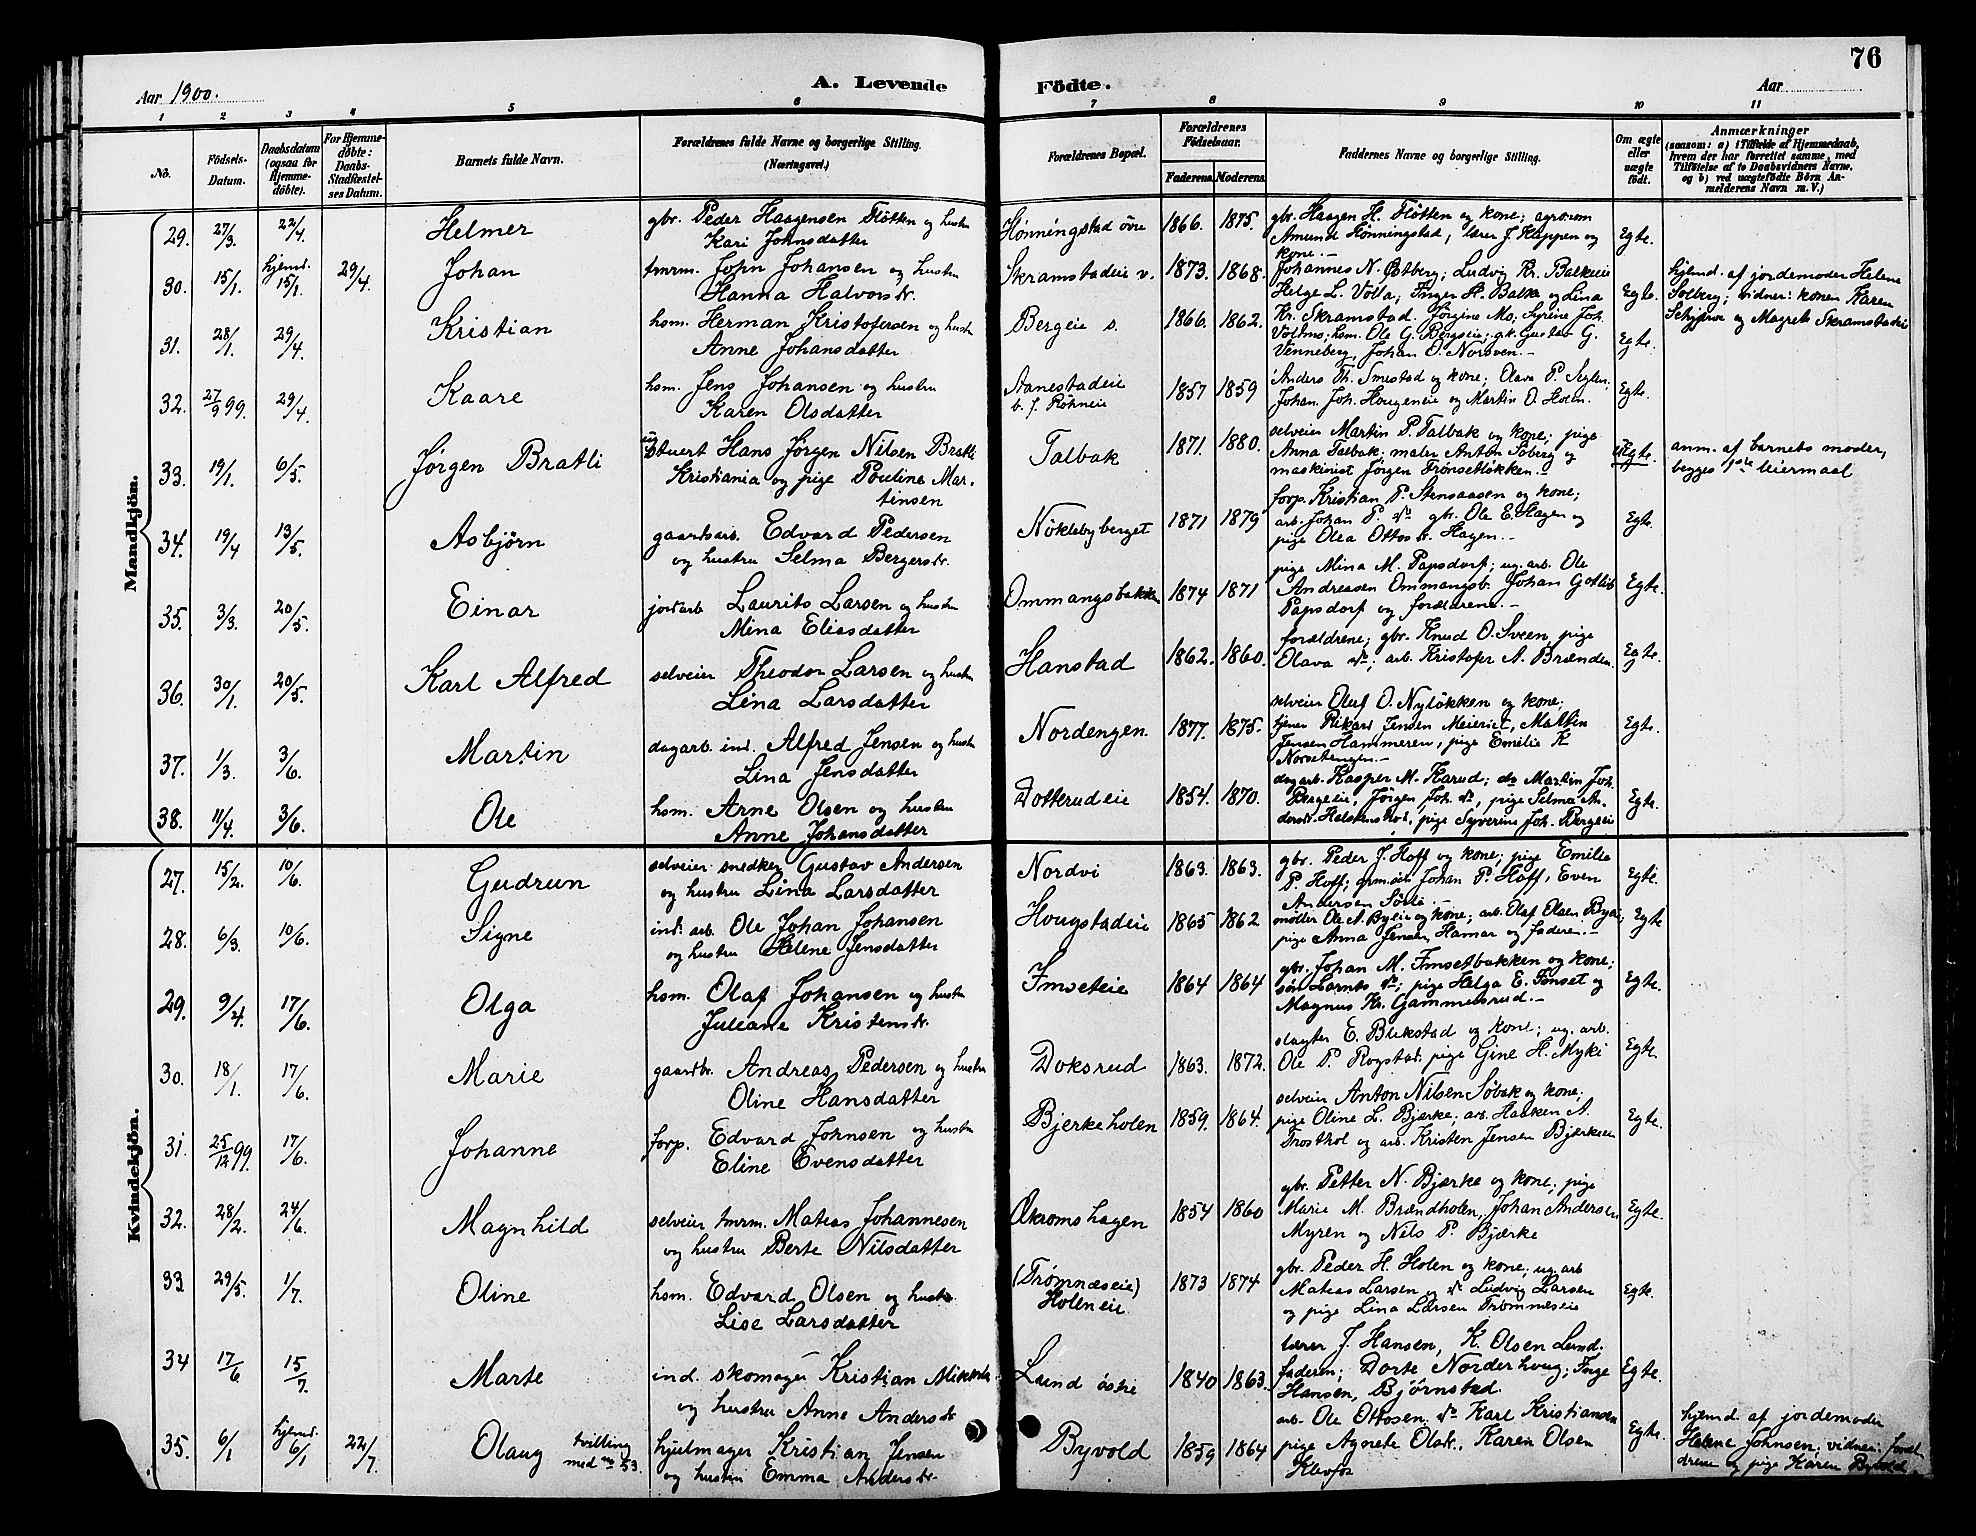 76
Aar 1900. A. Levende Födte. Aar
1 2 3 4 5 6 7 8 9 10 11
No. Födsels-Datum. Daabsdatum (ogsaa for Hjemmedöbte). For Hjemmedöbte: Daabs-Stadfæstelses Datum. Barnets fulde Navn. Forældrenes fulde Navne og borgerlige Stilling. (Næringsvei.) Forældrenes Bopæl. Forældrenes Födselsaar. Faderens. Moderens. Faddernes Navne og borgerlige Stilling. Om ægte eller uægte födt. Anmærkninger (saasom: a) i Tilfælde af Hjemmedaab, hvem der har forrettet samme, med Tilföielse af to Daabsvidners Navne, og b) ved uægtefödte Börn Anmelderens Navn m. V.)
Mandkjön.
29. 27/3. 22/4. Helmer gbr. Peder Haagensen Fløtten og hustru Kari Johnsdatter Hønningstad övre 1866. 1875. gbr. Haagen H. Fløtten og kone; agronom Amund Hønningstad, lærer J. Kloppen og kone.- Egte.
30. 15/1. hjemd. 15/1. 29/4. Johan tmrm. John Johansen og hustru Hanna Halvorsdr. Skramstadeie v. 1873. 1868. Johannes N. Østberg; Ludvig Kr. Balkeie Helge L. Volla; Inger H. Balke og Lina Kr. Skramstad. Egte. hjemd. af jordemoder Helene Solberg; vidner: konen Karen Schjerve og Magrete Skramstadeie
31. 28/1. 29/4. Kristian hsm. Herman Kristofersen og hustru Anne Johansdatter Bergeie s. 1866. 1862. Jørgine Mo; Syrine Joh. Voldmo; hsm. Ole G. Bergseie; gk. Gustav G. Venneberg, Johan O. Norsven.- Egte.
32. 27/9 99. 29/4. Kaare hsm. Jens Johansen og hustru Karen Olsdatter Aanestadeie b. f. Røhneie 1857 1859 Anders Th. Smestad og kone; Olava P. Seglen. Johan Joh. Hougeneie og Martin O. Holen. Egte.
33. 19/1. 6/5. Jørgen Bratli Stuert Hans Jørgen Nilsen Bratli Kristiania og pige Pouline Martinsen Talbak 1871. 1880. selveier Martin P. Talbak og kone; pige Anna Talbak; maler Anton Soberg og maskinist Jørgen Trønsetløkken.- uEgte. anm. af barnets moder, begges 1ste leiermaal
34. 19/4 13/5. Asbjörn gaardsarb. Edvard Pedersen og hustru Selma Bergersdr. Nøklebyberget 1871 1879 forp. Kristian P. Stensaasen og kone; arb. Johan P do gbr. Ole E. Hagen og pige Olea Ottosdr. Hagen.- Egte.
35. 3/3. 20/5. Einar jordarb. Laurits Larsen og hustru Mina Eliasdatter Ommangsbakken 1874 1871 pige Mina M. Papsdorf; ug. arb. Ole Andreasen Ommangsb. Johan Gotlieb Papsdorf og forældrene.- Egte.
36. 30/1. 20/5. Karl Alfred selveier Theodor Larsen og hustru Lina Larsdatter Hanstad 1862. 1860. forældrene; gbr. Knud O. Sveen, pige Olava do; arb. Kristofer A. Brænden. Egte.
37. 1/3. 3/6. Martin dagarb. ind. Alfred Jensen og hustru Lina Jensdatter Nordengen 1877. 1875. selveier Oluf O. Nyløkken og kone; tjener Rikard Jensen Meieriet, Martin Jensen Hammeren, pige Emilie K Norsetengen.- Egte.
38. 11/4. 3/6. Ole hsm. Arne Olsen og hustru Anne Johansdatter Dotterudeie 1854. 1870. dagarb. Kasper M. Karud; do Martin Joh. Bergeie, Jörgen Joh. do, pige Selma Andersdr. Helskenshol, pige Syverine Joh. Bergeie Egte.
Kvindekjön.
27. 15/2. 10/6. Gudrun selveier snedker Gustav Andersen og hustru Lina Larsdatter Nordvi 1863. 1863. gbr. Peder J. Hoff og kone; pige Emilie P. Hoff; Johan P. Hoff, Even Andersen Egte.
28. 6/3. 10/6. Signe ind. arb. Ole Johan Johansen og hustru Helene Jensdatter Hougstadeie 1865 1862 møller Ole A. Byeie og kone; arb. Olaf Olsen pige Anna Jensen, Hamar og faderen.- Egte
29. 9/4. 17/6. Olga hsm. Olaf Johansen og hustru Juliane Kristensdr. Imseteie 1864 1864 gbr. Johan M. Imsetbakken og kone; søn Larnts do; pige Helga E. Tønset og Magnus Kr. Gammelsrud.- Egte.
30. 18/1. 17/6. Marie gaardbr. Andreas Pedersen og hustru Oline Hansdatter Doksrud 1863. 1872. slagter E. Blikstad og kone; ug. arb. Ole P. Rogstad, pige Gine H. Myki Egte.
31. 25/12 99. 17/6. Johanne forp. Edvard Johnsen og hustru Eline Evensdatter Bjerkeholen 1859. 1864. selveier Anton Nilsen Søbak og kone; pige Oline L. Bjerke, arb. Haaken A. Frosthol og arb. Kristen Jensen Bjerkeeie Egte.
32. 28/2. 24/6. Magnhild selveier tmrm. Matias Johannesen og hustru Berte Nilsdatter Økromshagen 1854 1860 gbr. Petter N. Bjærke og kone, pige Marie M. Brændholen, Johan Andersen Myren og Nils P. Bjærke Egte.
33 29/5. 1/7. Oline hsm. Edvard Olsen og hustru Lise Larsdatter (Trømnæseie) Holeneie 1873 1874 gbr. Peder H. Holen og kone; ug. arb Matias Larsen og do Ludvig Larsen og pige Lina Larsen Trømnæseie Egte.
34 17/6 15/7. Marte ind. skomager Kristian Mikkelsen og hustru Anne Andersdr. Lund östre 1840 1863. lærer J. Hansen, K. Olsen Lund. faderen; Dorte Norderhoug; Inge Hansen, Bjørnstad. Egte.
35. 6/1 hjemd. 6/1 22/7. Olaug tvilling med no 53. hjulmager Kristian Jensen og hustru Emma Andersdr. Byvold 1859 1864 arb. Ole Ottosen; do Karl Kristiansen pige Agnete Olsdr., Karen Olsen Klevfos Egte. hjemd. af jordemoder Helene Johnsen; vidner: forældrene og pige Karen Byvold